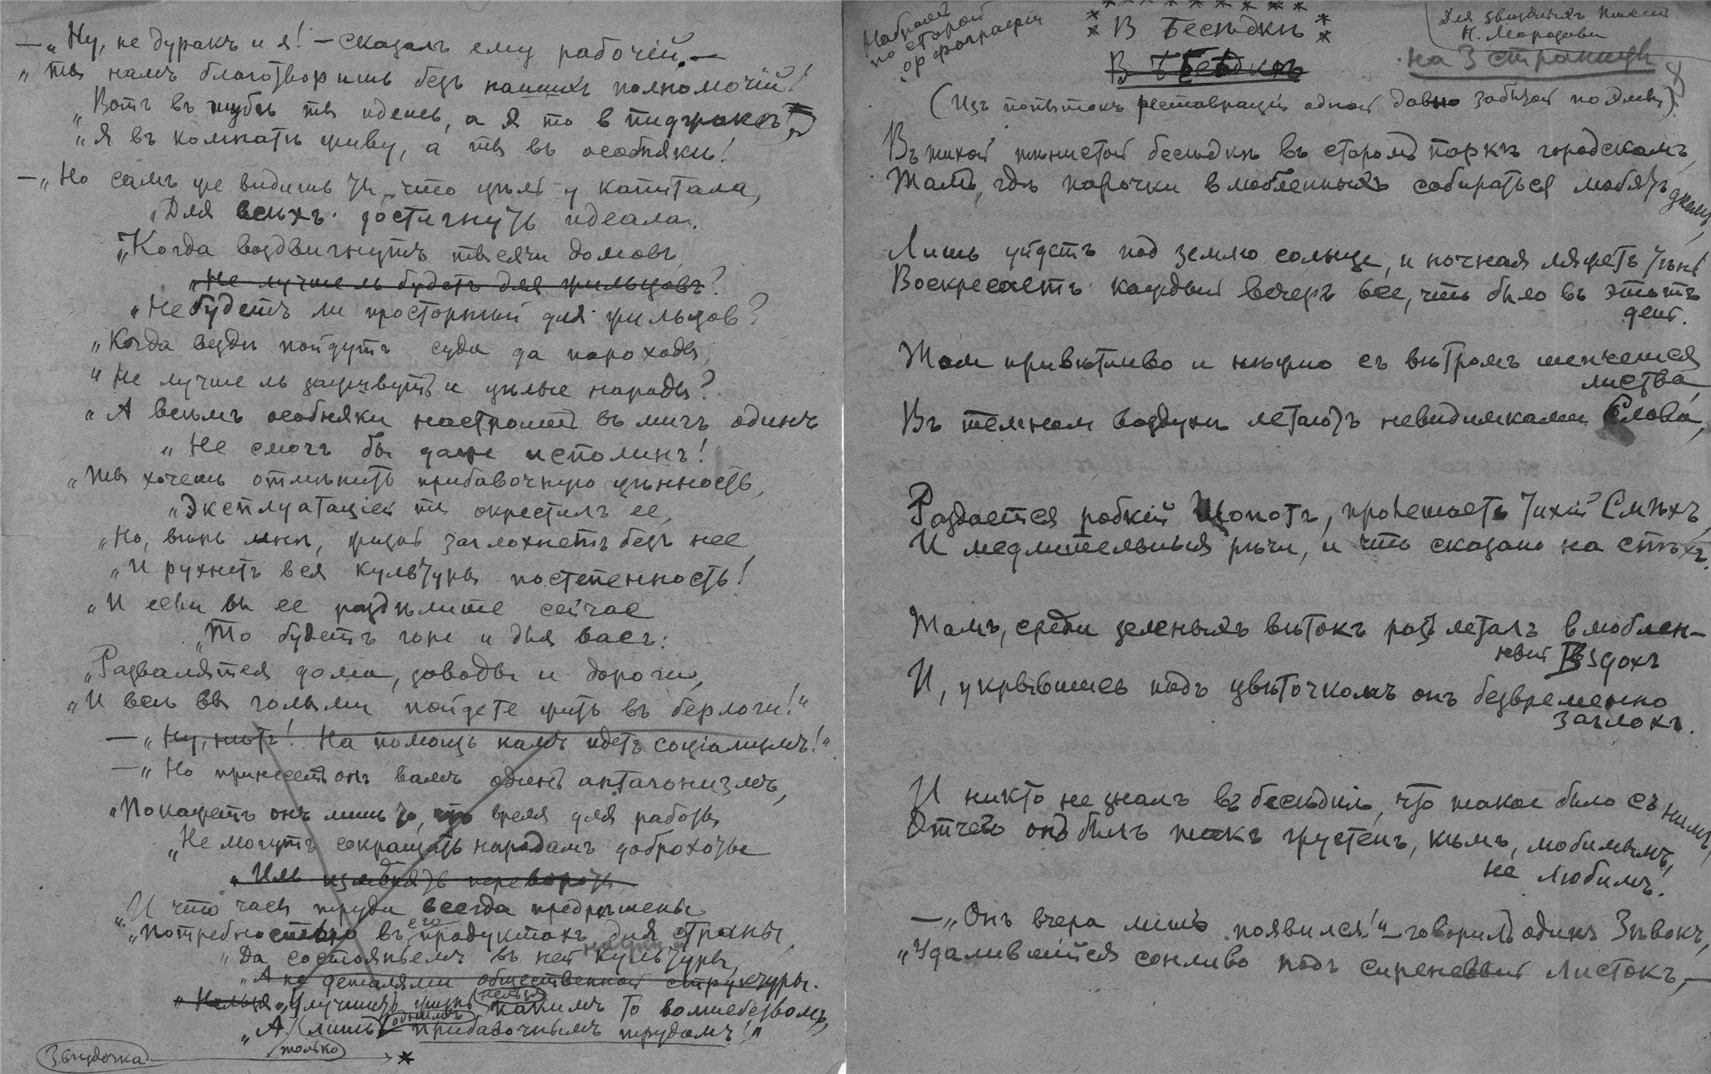 — „Ну, не дуракъ и я! — сказалъ ему рабочій. —
„Ты намъ благотворишь безъ нашихъ полномочій!
„Вотъ въ шубѣ ты идешь, а я то в пиджакѣ
„Я въ комнатѣ живу, а ты въ особнякѣ!
— „Но самъ же видишь ты, что цѣль у капитала,
„Для всѣхъ достигнуть идеала.
„Когда воздвигнутъ тысячи домовъ,
„Не лучше ль будетъ для жильцовъ?
„Не будетъ ли просторный для жильцов?
„Когда вездѣ пойдутъ суда да пароходы,
„Не лучше ль заживутъ и цѣлые народы?
„А всѣмъ особняки настроить въ мигъ одинъ
„Не смогъ бы даже исполинъ!
„Ты хочешь отмѣнить прибавочную цѣнность,
„Эксплуатаціей ты окрестилъ ее,
„Но, вѣрь мнѣ, жизнь заглохнетъ безъ нее
„И рухнетъ вся культуры постепенность!
„И если вы ее раздѣлите сейчас
„То будетъ горе и для васъ:
„Развалятся дома, заводы и дороги,
„И всѣ вы голыми пойдете жить въ берлоги!“
— „Ну, нѣтъ! На помощь намъ идетъ соціализмъ!“
— „Но принесетъ онъ вамъ одинъ антагонизмъ,
„Покажетъ онъ лишь то, что время для работы
„Не могутъ сокращать народамъ доброхоты
„Иль измѣнять перевороты
„И что часы труда всегда предрѣшены
„Потребностью въ его продуктахъ для страны,
„Да состояньемъ въ ней культуры
„А не деталями общественной структуры.
„Нельзя „Улучшить жизнь нельзя какимъ то волшебствомъ,
„А лишь однимъ прибавочнымъ трудомъ!“
только
Звѣздочка → *
Набрать
по старой
орфографіи
* * * * * * * *
* В Бесѣдкѣ *
В Бесѣдкѣ
Для
Н. Морозовъ
на 3 страницѣ
(Изъ попытокъ реставраціи одной давно забытой поэмы).
Въ тихой тѣнистой бесѣдкѣ въ старомъ паркѣ городскомъ,
Тамъ, гдѣ парочки влюбленныхъ собираться любятъ днемъ,
Лишь уйдетъ под землю солнце, и ночная ляжетъ тѣнь
Воскресаетъ каждый вечеръ все, что было въ этотъ
день.
Там привѣтливо и нѣжно съ вѣтромъ шепчется
листва,
Въ темном воздухѣ летаютъ невидимками Слова,
Раздается робкій Шопотъ, пролетаетъ тихій Смѣхъ,
И медлительныя рѣчи, и что сказано на спѣхъ.
Тамъ, среди зеленыхъ вѣтокъ разъ леталъ влюблен-
ный Вздохъ
И, укрывшись подъ цвѣточкомъ онъ безвременно
заглохъ.
И никто не зналъ въ бесѣдкѣ, что такое было съ нимъ,
Отчего онъ былъ такъ грустенъ, кѣмъ, любимымъ,
не любимъ!
— „Онъ вчера лишь появился!“ — говорилъ одинъ Зѣвокъ,
„Удалившійся сонливо подъ сиреневый листокъ, —